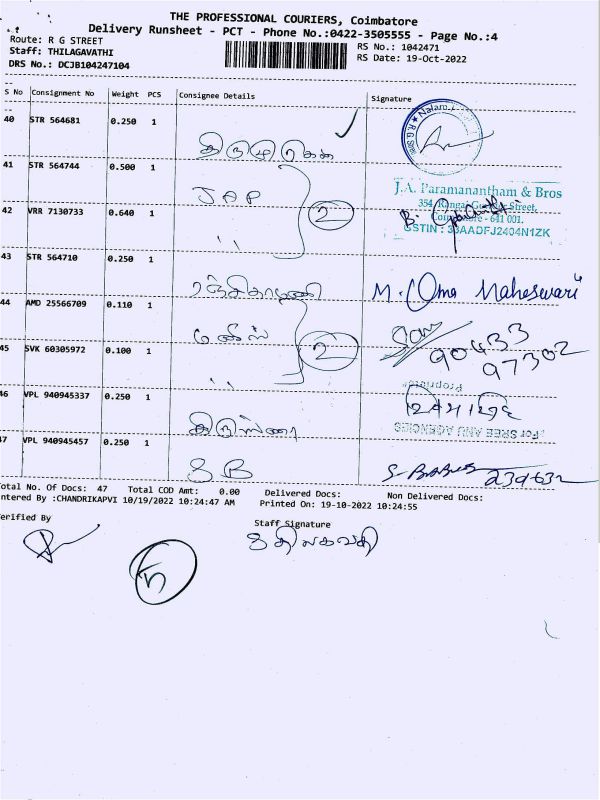 THE PROFESSIONAL COURIERS, Coimbatore
Delivery Runsheet - PCT - Phone No.:0422-3505555 - Page No.:4
Route: R G STREET
Staff: THILAGAVATHI
DRS No.: DCJB104247104
RS No.: 1042471
RS Date: 19-Oct-2022
S No Consignment No Weight PCS Consignee Details Signature
40 STR 564681 0.250 1
41 STR 564744 0.500 1 JAP
J.A. Paramanantham & Bros
354, Rangai Gowder Street,
Coimbatore - 641 001.
GSTIN : 33AADFJ2404N1ZK
42 VRR 7130733 0.640 1 " 2
43 STR 564710 0.250 1 M. Uma Maheswari
44 AMD 25566709 0.110 1 90433
97302
45 SVK 60305972 0.100 1 " 2
Proprietor
46 VPL 940945337 0.250 1
For SREE ANU AGENCIES
47 VPL 940945457 0.250 1 SB S-BABU 239632
Total No. Of Docs: 47 Total COD Amt: 0.00 Delivered Docs: Non Delivered Docs:
ntered By :CHANDRIKAPVI 10/19/2022 10:24:47 AM Printed On: 19-10-2022 10:24:55
erified By
Staff Signature
திலகவதி